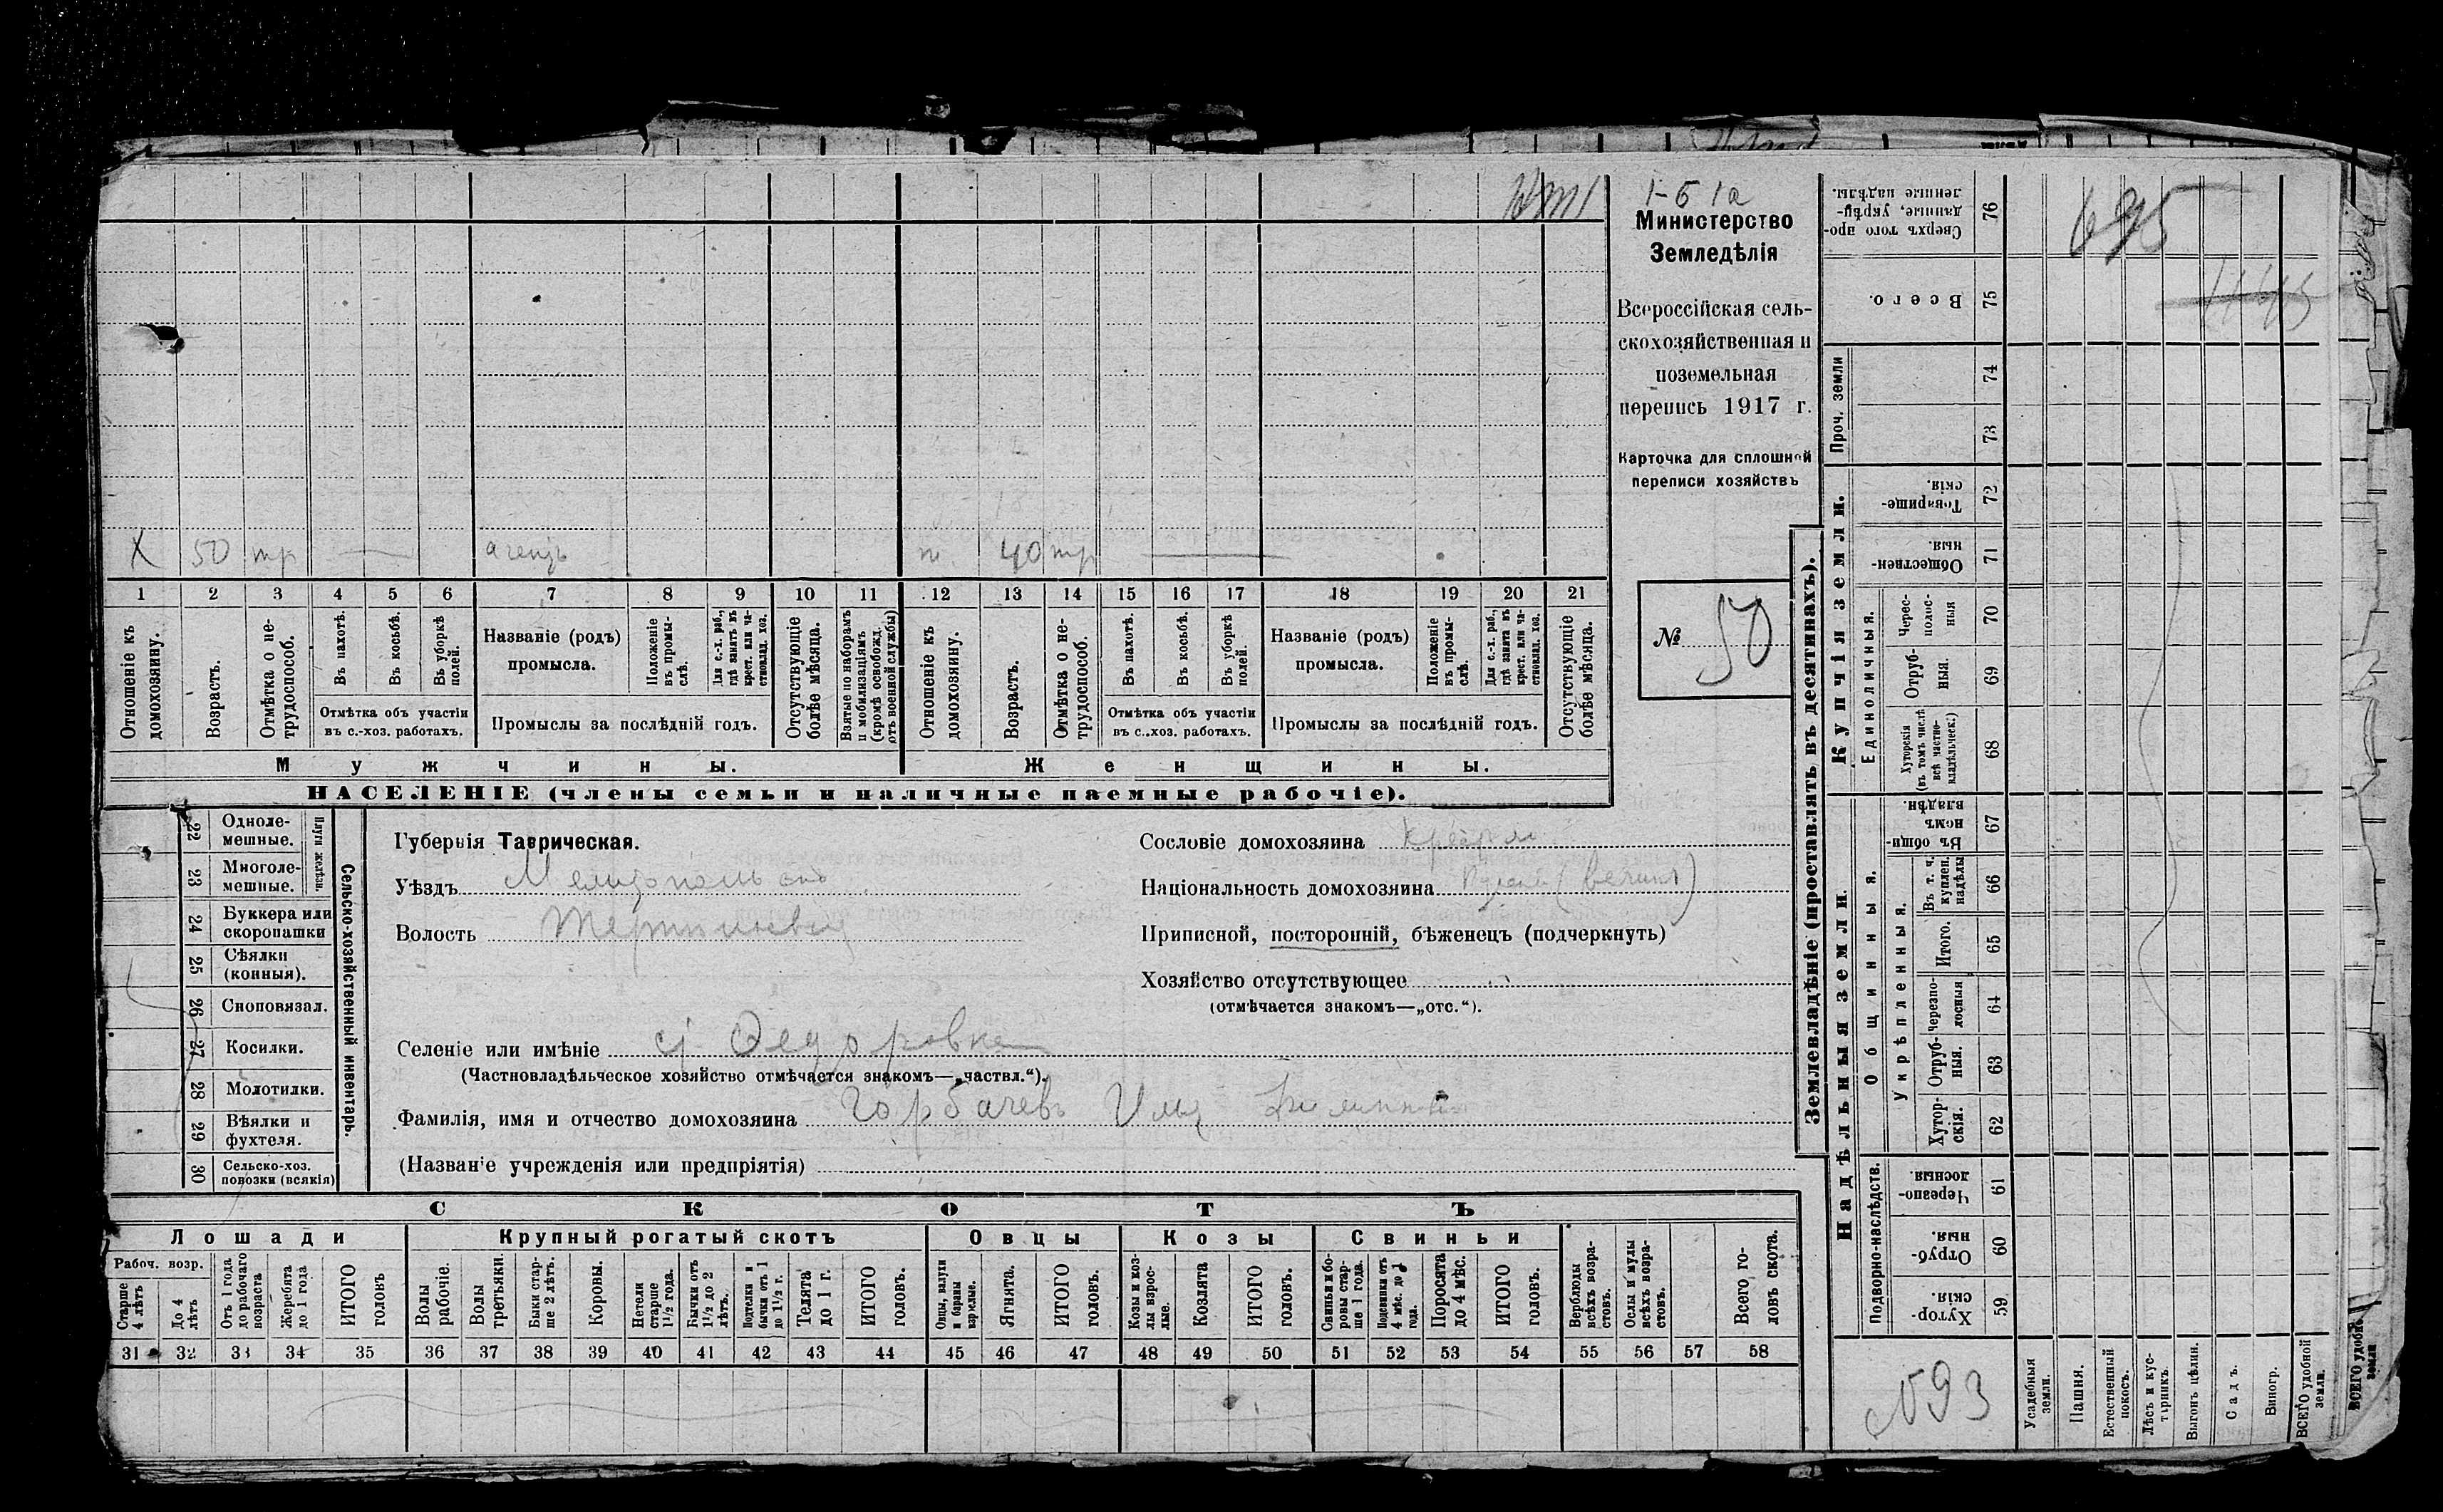 1-Б 1а
Министерство
Земледѣлія
Всероссійская сель-
скохозяйственная и
поземельная
перепись 1917 г.
Карточка для сплошной
переписи хозяйствъ
№ 50
Х 50 тр — агентъ 40 тр —
1 2 3 4 5 6 7 8 9 10 11 12 13 14 15 16 17 18 19 20 21
Отношеніе къ домохозяину.
Возрастъ.
Отмѣтка о не-трудоспособ.
Въ пахотѣ.
Въ косьбѣ.
Въ уборкѣ полей.
Отмѣтка объ участіи
въ с.-хоз. работахъ.
Названіе (родъ)
промысла.
Положеніе въ промы-слѣ.
Для с.-х. раб., гдѣ занятъ въ крест. или ча-стновлад. хоз.
Промыслы за послѣдній годъ.
Отсутствующіе болѣе мѣсяца.
Взятые по наборамъ и мобилизаціямъ (кромѣ освобожд. отъ военной службы)
Отношеніе къ домохозяину.
Возрастъ.
Отмѣтка о не-трудоспособ.
Въ пахотѣ.
Въ косьбѣ.
Въ уборкѣ полей.
Отмѣтка объ участіи
въ с.-хоз. работахъ.
Названіе (родъ)
промысла.
Положеніе въ промы-слѣ.
Для с.-х. раб., гдѣ занята въ крест. или ча-стновлад. хоз.
Промыслы за послѣдній годъ.
Отсутствующіе болѣе мѣсяца.
Мужчины. Женщины.
НАСЕЛЕНІЕ (члены семьи и наличные наемные рабочіе).
22 Одноле-мешные.
23 Многоле-мешные.
Плуги желѣзн.
24 Буккера или скоропашки
25 Сѣялки (конныя).
26 Сноповязал.
27 Косилки.
28 Молотилки.
29 Вѣялки и фухтеля.
30 Сельско-хоз. повозки (всякія)
Сельско-хозяйственный инвентарь.
Губернія Таврическая.
Уѣздъ Мелитопольскій
Волость
Селеніе или имѣніе с. Федоровка
(Частновладѣльческое хозяйство отмѣчается знакомъ—„частвл.“).
Фамилія, имя и отчество домохозяина Горбачевъ Илья
(Названіе учрежденія или предпріятія)
Сословіе домохозяина
Національность домохозяина
Приписной, посторонній, бѣженецъ (подчеркнуть)
Хозяйство отсутствующее
(отмѣчается знакомъ—„отс.“).
СКОТЪ
Лошади Крупный рогатый скотъ Овцы Козы Свиньи
Рабоч. возр.
Старше 4 лѣтъ
До 4 лѣтъ
Отъ 1 года до рабочаго возраста
Жеребята до 1 года
ИТОГО головъ
Волы рабочіе.
Волы третьяки.
Быки стар-ше 2 лѣтъ.
Коровы.
Нетели старше 1½ года.
Бычки отъ 1½ до 2 лѣтъ.
Подтелки и бычки отъ 1 до 1½ г.
Телята до 1 г.
ИТОГО головъ.
Овцы, валухи и бараны взрослые.
Ягнята.
ИТОГО головъ.
Козы и коз-лы взрос-лые.
Козлята
ИТОГО головъ.
Свиньи и бо-ровы стар-ше 1 года.
Подсвинки отъ 4 мѣс. до 1 года.
Поросята до 4 мѣс.
ИТОГО головъ.
Верблюды всѣхъ возра-стовъ.
Ослы и мулы всѣхъ возра-стовъ.
Всего го-ловъ скота.
31 32 33 34 35 36 37 38 39 40 41 42 43 44 45 46 47 48 49 50 51 52 53 54 55 56 57 58
Землевладѣніе (проставлять въ десятинахъ).
695
1145
Сверхъ того про-данные, укрѣп-ленные надѣлы. 76
Всего. 75
Проч. земли 74 73
Купчія земли.
Товарище-скія. 72
Обществен-ныя. 71
Единоличныя.
Черес-полос-ныя 70
Отруб-ныя. 69
Хуторскія (въ томъ числѣ всѣ частно-владѣльческ.) 68
Надѣльныя земли.
Общинныя.
Въ общи-номъ владѣн. 67
Укрѣпленныя.
Въ т. ч. куплен. надѣлы 66
Итого. 65
Черезпо-лосныя 64
Отруб-ныя. 63
Хутор-скія. 62
Подворно-наслѣдств.
Черезпо-лосныя 61
Отруб-ныя. 60
Хутор-скія. 59
№93
Усадебныя земли.
Пашня.
Естественный покосъ.
Лѣсъ и кус-тарникъ.
Выгонъ цѣлин.
Садъ.
Виногр.
ВСЕГО удобной земли.
ВСЕГО удобн. земли